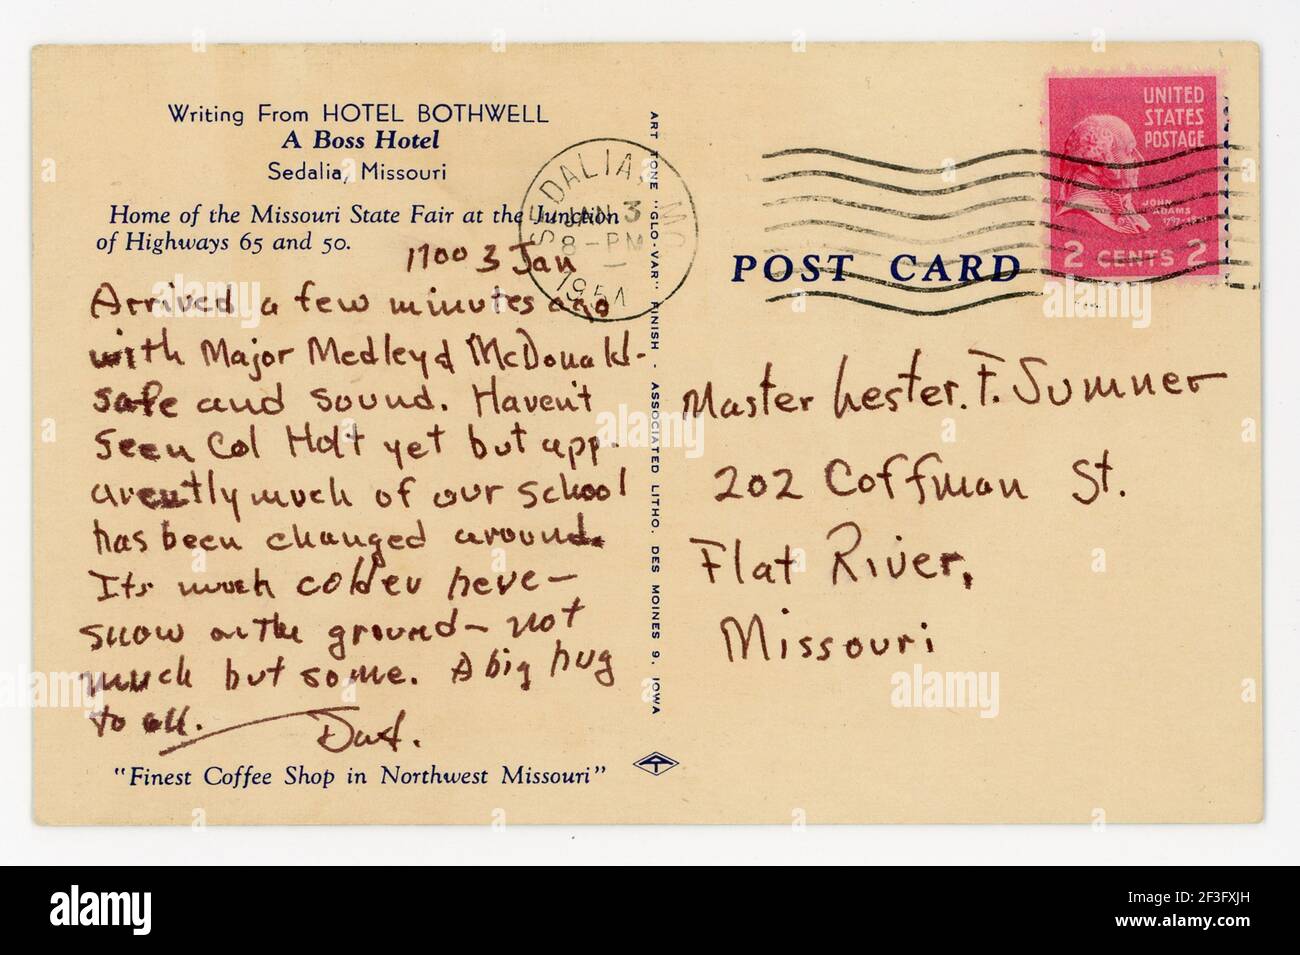 Writing From HOTEL BOTHWELL
A Boss Hotel
Sedalia, Missouri
Home of the Missouri State Fair at the Junction
of Highways 65 and 50.
1700 3 Jan
Arrived a few minutes ago
with Major Medley & McDonald-
safe and sound. Haven't
seen Col Holt yet but app-
arently much of our school
has been changed around.
Its much colder here-
snow on the ground- not
much but some. A big hug
to all.
Dad.
"Finest Coffee Shop in Northwest Missouri"
ART TONE "GLO-VAR" FINISH - ASSOCIATED LITHO. DES MOINES 9, IOWA
SEDALIA, MO.
JAN 3
8-PM
1954
UNITED
STATES
POSTAGE
JOHN
ADAMS
2 CENTS 2
POST CARD
Master Lester. F. Sumner
202 Coffman St.
Flat River,
Missouri
alamy
alamy
Image ID: 2F3FXJH
www.alamy.com